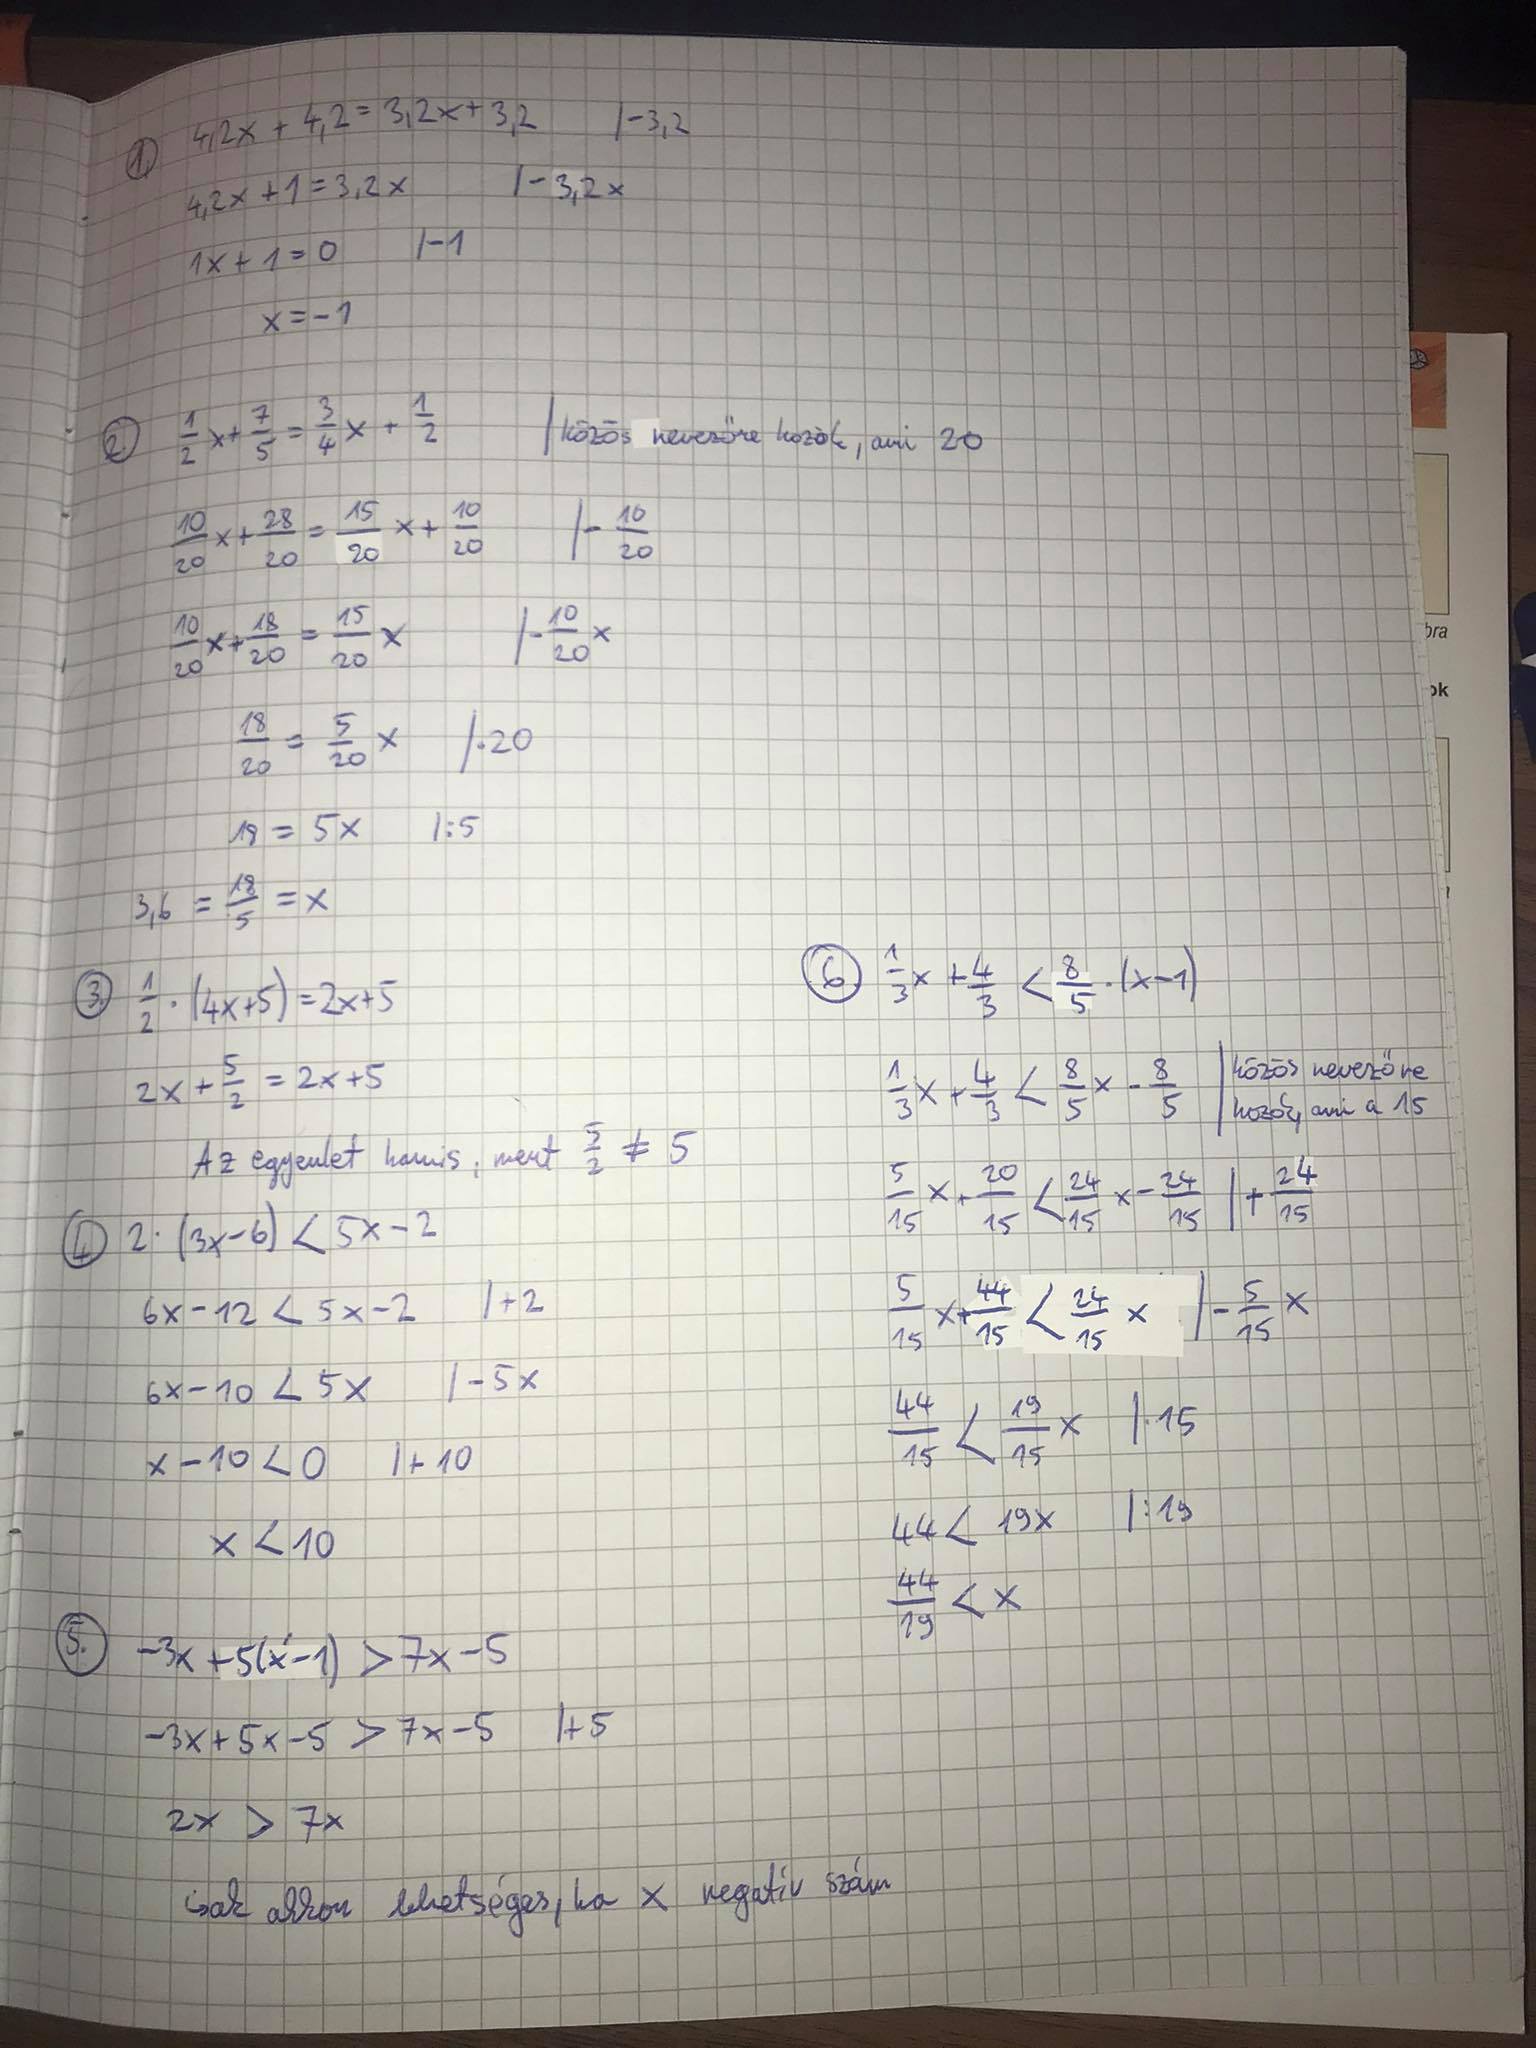 1. 4,2x + 4,2 = 3,2x + 3,2 |-3,2
4,2x + 1 = 3,2x |-3,2x
1x + 1 = 0 |-1
x = -1
2. 1/2 x + 7/5 = 3/4 x + 1/2 |közös nevezőre hozok, ami 20
10/20 x + 28/20 = 15/20 x + 10/20 |- 10/20
10/20 x + 18/20 = 15/20 x |- 10/20 x
18/20 = 5/20 x |·20
18 = 5x |:5
3,6 = 18/5 = x
3. 1/2 · (4x+5) = 2x+5
2x + 5/2 = 2x+5
Az egyenlet hamis, mert 5/2 ≠ 5
4. 2· (3x-6) < 5x-2
6x-12 < 5x-2 |+2
6x-10 < 5x |-5x
x-10 < 0 |+10
x < 10
5. -3x+5(x-1) > 7x-5
-3x+5x-5 > 7x-5 |+5
2x > 7x
csak akkor lehetséges, ha x negatív szám
6 1/3 x + 4/3 < 8/5 ·(x-1)
1/3 x + 4/3 < 8/5 x - 8/5 |közös nevezőre
hozok, ami a 15
5/15 x + 20/15 < 24/15 x - 24/15 |+ 24/15
5/15 x + 44/15 < 24/15 x |- 5/15 x
44/15 < 19/15 x |·15
44 < 19x |:19
44/19 < x
bra
ok